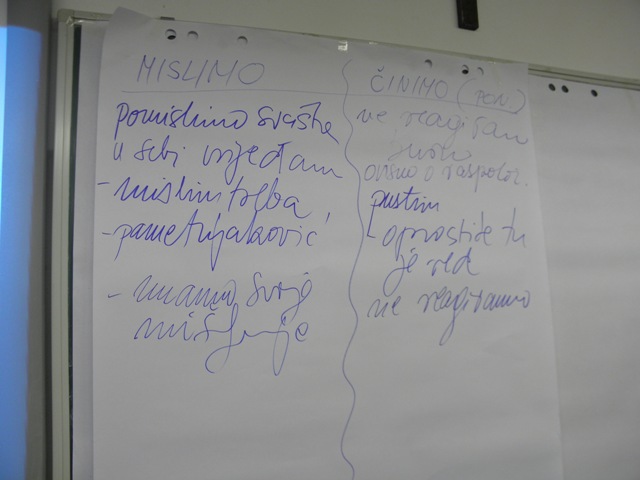 MISLIMO
pomislimo svašta
u sebi vrijeđam
- mislim treba
- pametnjaković
- imamo svoje
mišljenje
ČINIMO
ne reagiram
ovisno o raspolož.
pustim
- oprostite tu
je red
ne reagiramo